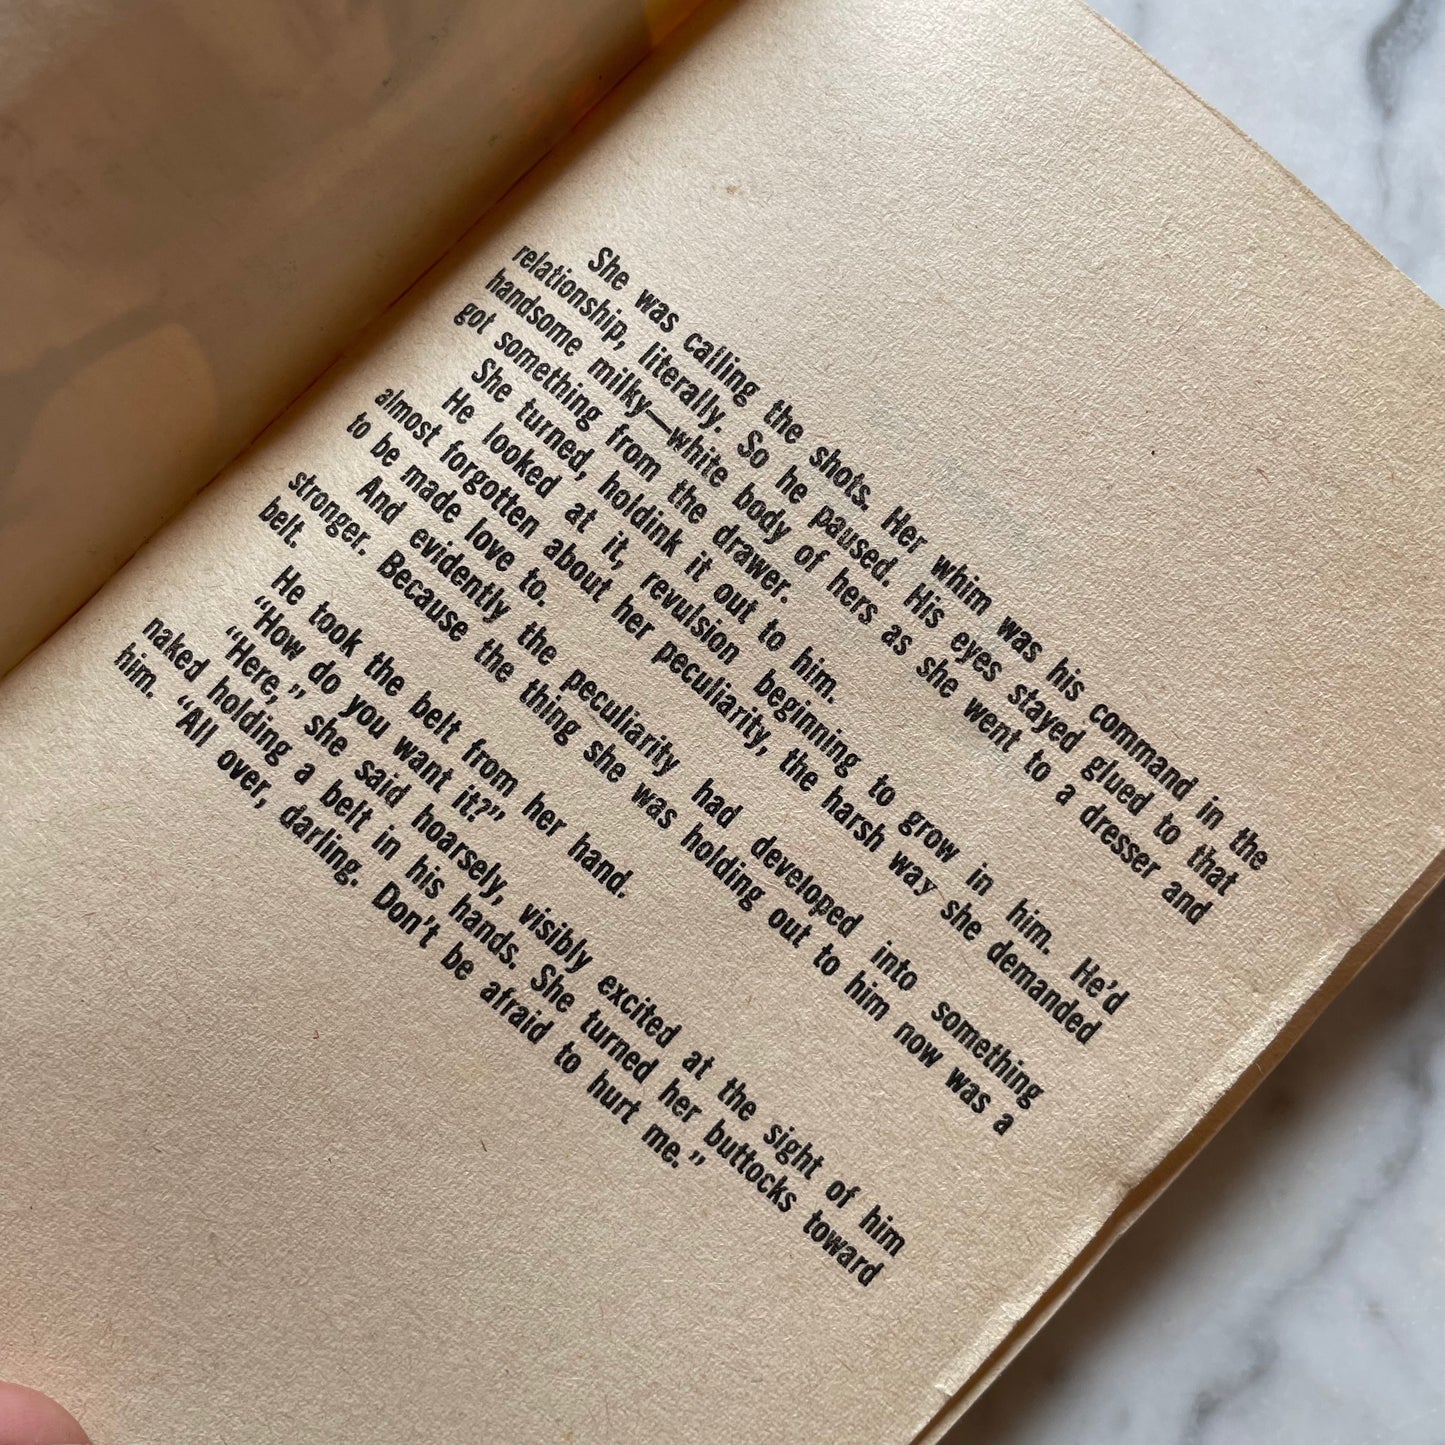 She was calling the shots. Her whim was his command in the
relationship, literally. So he paused. His eyes stayed glued to that
handsome milky—white body of hers as she went to a dresser and
got something from the drawer.
She turned, holdink it out to him.
He looked at it, revulsion beginning to grow in him. He'd
almost forgotten about her peculiarity, the harsh way she demanded
to be made love to.
And evidently the peculiarity had developed into something
stronger. Because the thing she was holding out to him now was a
belt.
He took the belt from her hand.
“How do you want it?”
“Here,” she said hoarsely, visibly excited at the sight of him
naked holding a belt in his hands. She turned her buttocks toward
him. “All over, darling. Don't be afraid to hurt me.”